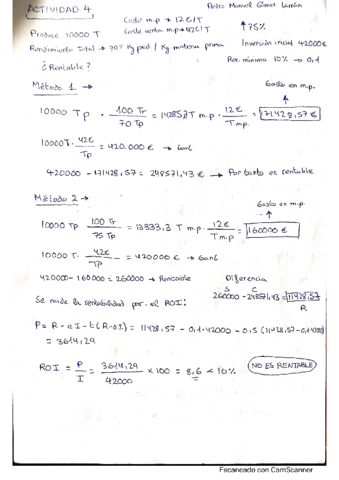 ACTIVIDAD 4
Coste m.p → 12€/T
Produce 10000 T
Coste venta m.p → 42€/T
↑75%
Rendimiento Total → 70% Kg prod / Kg materia prima
Inversión inicial 42000€
¿Rentable?
Ren. mínima 10% → 0,1
Método 1 →
Gasto en m.p.
10000 Tp · 100 Tr / 70 Tp = 14285,7 T m.p · 12€ / T m.p. = 171428,57 €
10000T · 42€ / Tp = 420.000€ → Gan€
420000 - 171428,57 = 248571,43 € → Por tanto es rentable
Método 2 →
Gasto en m.p.
10000 Tp 100 Tr / 75 Tp = 13333,3 T m.p · 12€ / T m.p = 160000 €
10000 T · 42€ / Tp = 420000€ → Gan€
420000 - 160000 = 260000 → Rentable
Diferencia
S C
260000 - 248571,43 = 11428,57
R
Se mide la rentabilidad por el ROI:
P = R - eI - t(R-dI) = 11428,57 - 0,1·42000 - 0,5 (11428,57 - 0,1·42000)
= 3614,29
ROI = P / I = 3614,29 / 42000 × 100 = 8,6 < 10%
NO ES RENTABLE
Escaneado con CamScanner